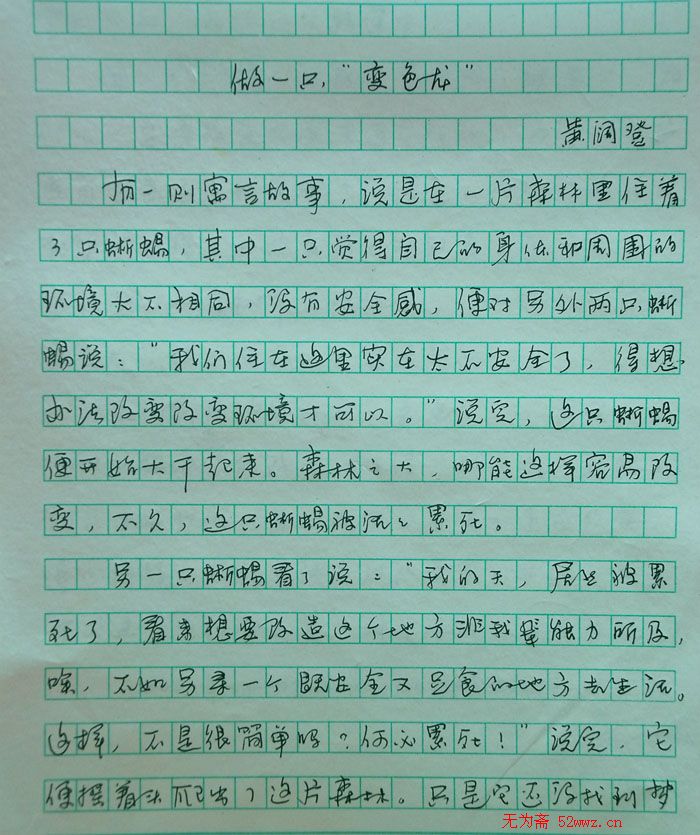 做一只“变色龙”
黄润登
有一则寓言故事，说是在一片森林里住着
3只蜥蜴，其中一只觉得自己的身体和周围的
环境大不相同，没有安全感，便对另外两只蜥
蜴说：“我们住在这里实在太不安全了，得想
办法改变改变环境才可以。”说完，这只蜥蜴
便开始大干起来。森林之大，哪能这样容易改
变，不久，这只蜥蜴被活活累死。
另一只蜥蜴看了说：“我的天，居然被累
死了，看来想要改造这个地方非我辈能力所及，
唉，不如另寻一个既安全又足食的地方去生活。
这样，不是很简单吗？何必累死！”说完，它
便摆着头爬出了这片森林。只是它还没找到梦
无为斋 52wwz.cn